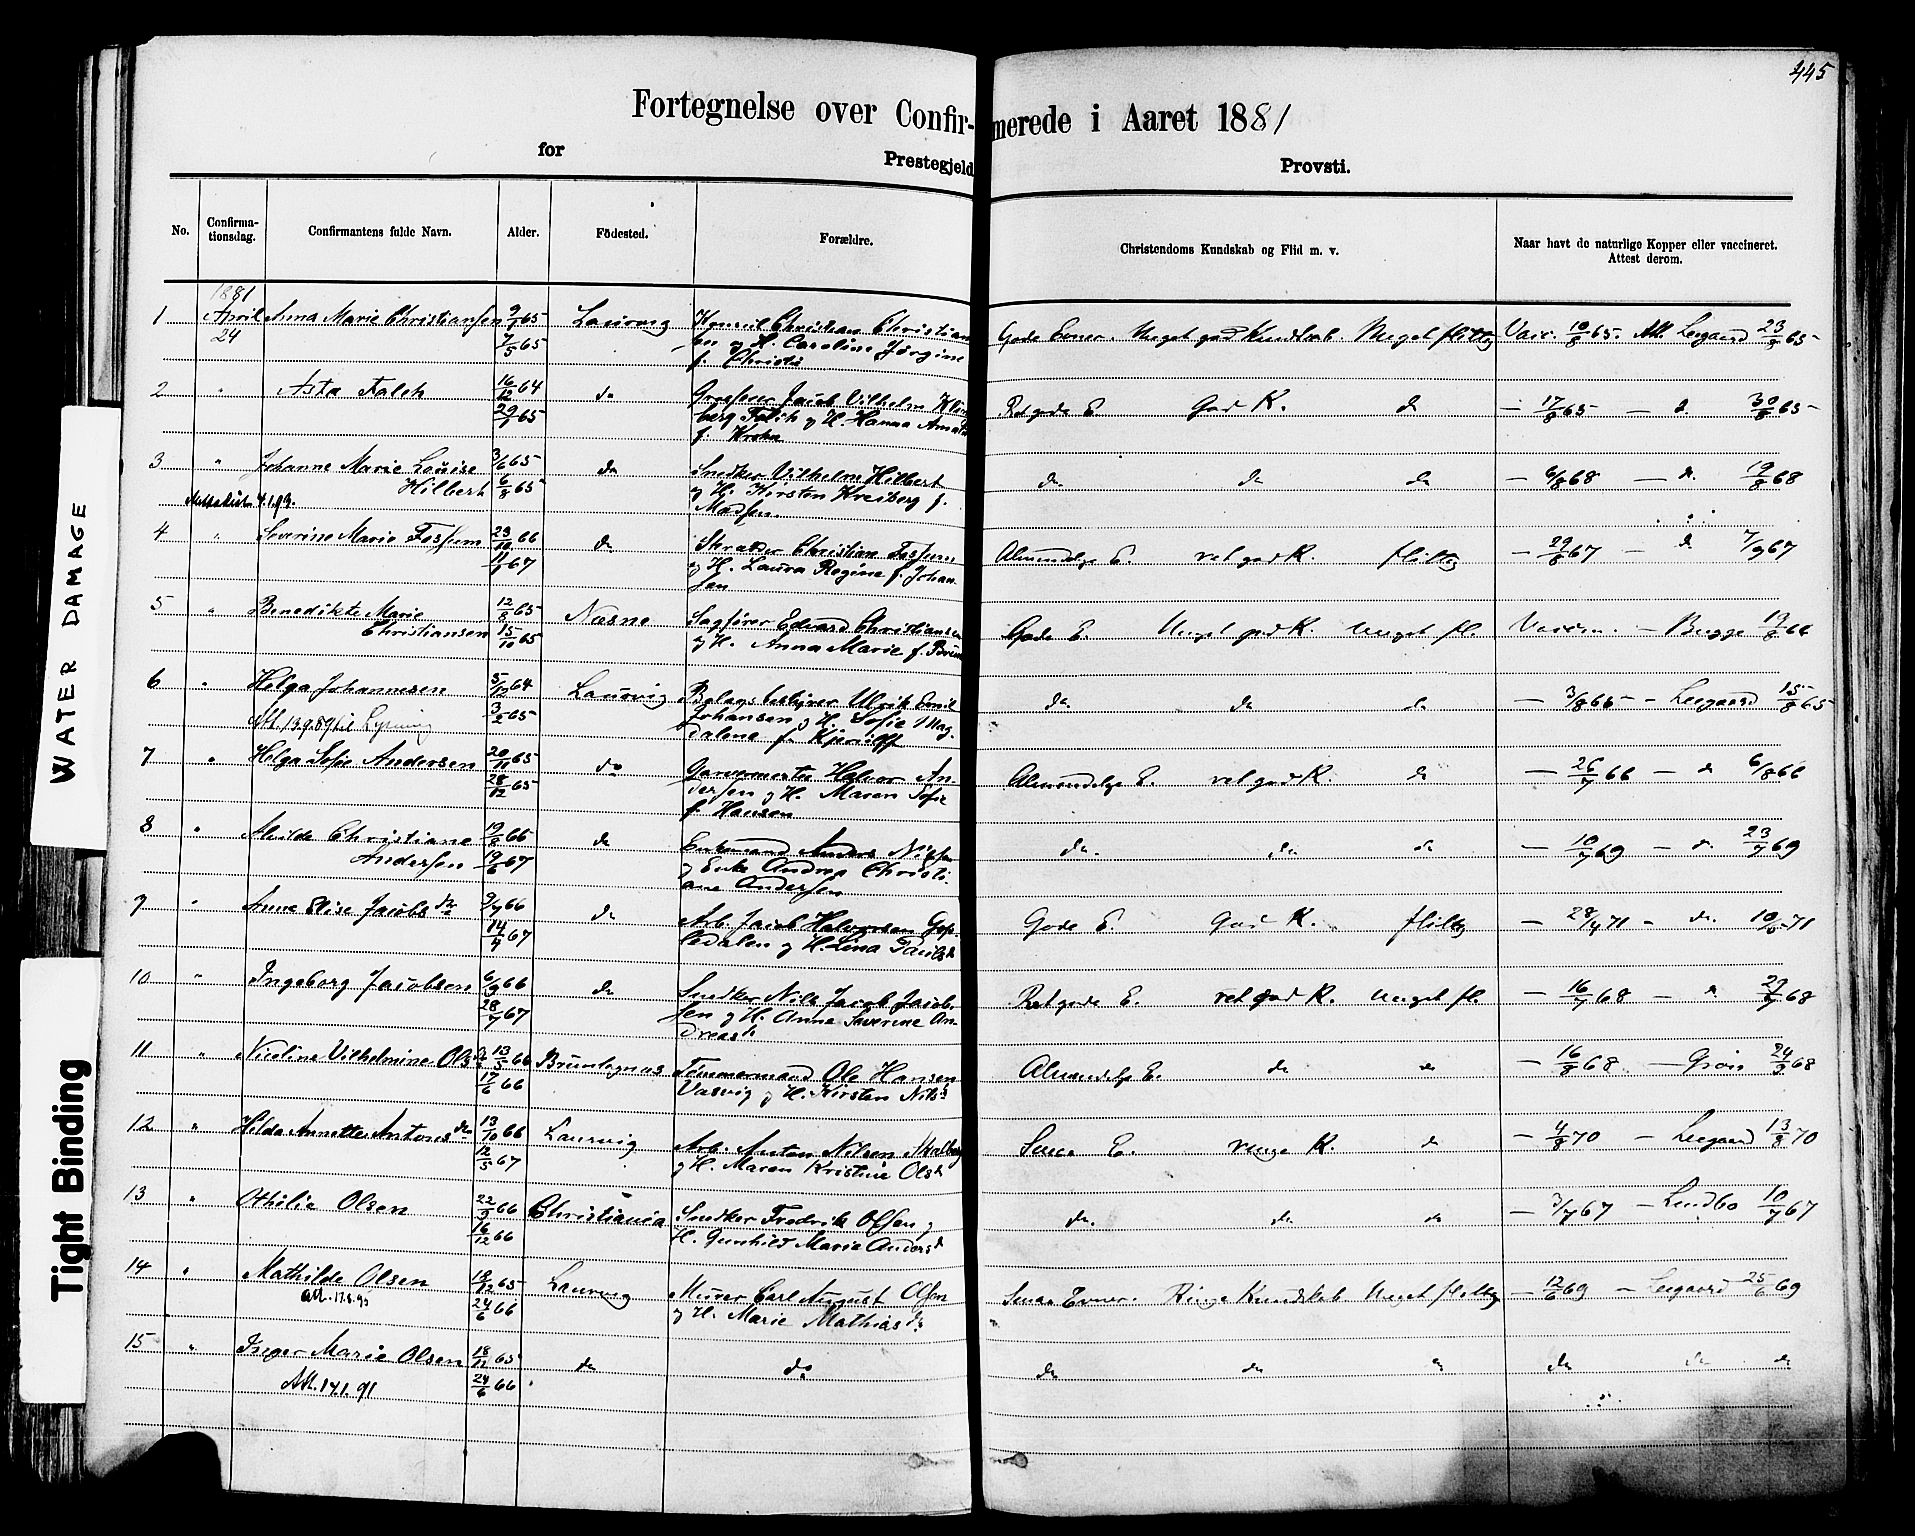 445
Fortegnelse over Confirmerede i Aaret 1881
for Prestegjeld Provsti.
No. Confirmationsdag. Confirmantens fulde Navn. Alder. Födested. Forældre. Christendoms Kundskab og Flid m. v. Naar havt de naturlige Kopper eller vaccineret. Attest derom.
1881
1 April 24 Anna Marie Christiansen 9/1 65 7/5 65 Laurvig Konsul Christian Christiansen og H. Caroline Jørgine f. Christie Gode Evner. Meget god Kundskab. Meget flittig Vacc. 10/8 65. Att. Legaard 23/8 65
2 " Asta Falch 16/12 64 29/1 65 do Jacob Vilhelm Falch og H. Hanna f. Krohn Ret gode E. God K. do — 17/8 65 — d. 30/8 65
3 " Johanne Marie Louise Hilbert 3/6 65 6/8 65 do Snedker Vilhelm Hilbert og H. Kirsten Kreiberg f. Madsen. do do do — 6/8 68 — d. 19/8 68
4 " Severine Marie Fossum 23/10 66 11/1 67 do Christian Fossum, og H. Laura Regine f. Johansen Almindelige E. ret god K. flittig — 29/8 67 — d 7/9 67
5 " Benedikte Marie Christiansen 12/8 65 15/10 65 Næsne Sagfører Edvard Christiansen og H. Anna Marie f. Gode E. Meget god K. Meget fl. — Bugge 19/8 66
6 " Helga Johannesen 5/12 64 3/2 65 Laurvig Ulrik Emil Johansen og H. Sofie Magdalene f. Kjerulff do do do — 3/8 65 — Legaard 15/8 65
Att. 13.9.89 til Lysning
7 " Helga Sofie Andersen 20/11 65 28/12 65 do Garvermester Halvor Andersen og H. Maren Sofie f. Hansen Almindelige E. ret god K. do — 26/7 66 — d 6/8 66
8 " Alvilde Christiane Andersen 19/8 66 19/6 67 do Enkemand Anders Nilsen og Enke Andrea Christiane Andersen do. do do — 10/7 69 — do 23/7 69
9 " Anne Elise Jacobsdr 9/7 66 14/4 67 do Arb. Jacob Halvorsen og H. Lina Gode E. God K. flittig — 28/4 71 — do. 10/5 71
10 " Ingeborg Jacobsen 6/9 66 28/7 67 do Snedker Nils Jacob Jacobsen og H. Anne Severine Andreasd. Ret gode E. ret god K. Meget fl. — 16/7 68 — d. 29/7 68
11 " Nicoline Vilhelmine Olsdr 13/5 66 17/6 66 Brunlagnæs Tømmermand Ole Hansen Vasvig og H. Kirsten Nilsd. Almindelige E. do do — 16/8 68 — 24/9 68
12 " Hilda Annette Antonsdr 13/10 66 12/5 67 Laurvig Arb. Anton Nilsen og H. Maren Kristine Olsd. Smaa E. ringe K. do — 4/8 70 — Legaard 13/8 70
13 " Othilie Olsen 22/9 66 16/12 66 Christiania Snedker Fredrik Olsen og H. Gunhild Marie Andersd. do. do do — 3/7 67 — Lundbo 10/7 67
14 " Mathilde Olsen 18/12 65 24/6 66 Laurvig Murer Carl August Olsen og H. Marie Mathiasdr Smaa Evner. Ringe Kundskab Meget flittig — 12/6 69 — Legaard 25/6 69
att. 17.8.93
15 " Inger Marie Olsen 18/12 65 24/6 66 do do do do do do do do
Att. 17.1.91
WATER DAMAGE
Tight Binding